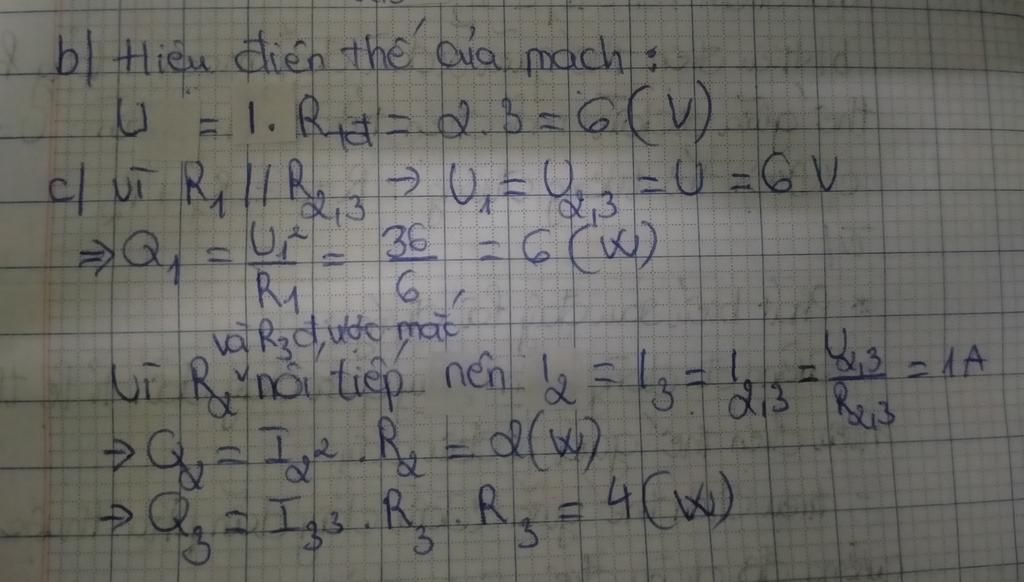 b) Hiệu điện thế của mạch :
U = I . R₁₂₃ = 2.3 = 6 (V)
c) Vì R₁ // R₂,₃ → U₁ = U₂,₃ = U = 6 V
⇒ Q₁ = U₁²/R₁ = 36/6 = 6 (W)
và R₃ được mắc
Vì R₂ nối tiếp nên I₂ = I₃ = I₂,₃ = U₂,₃/R₂,₃ = 1A
→ Q₂ = I₂² . R₂ = 2 (W)
→ Q₃ = I₃³ . R₃ . R₃ = 4 (W)